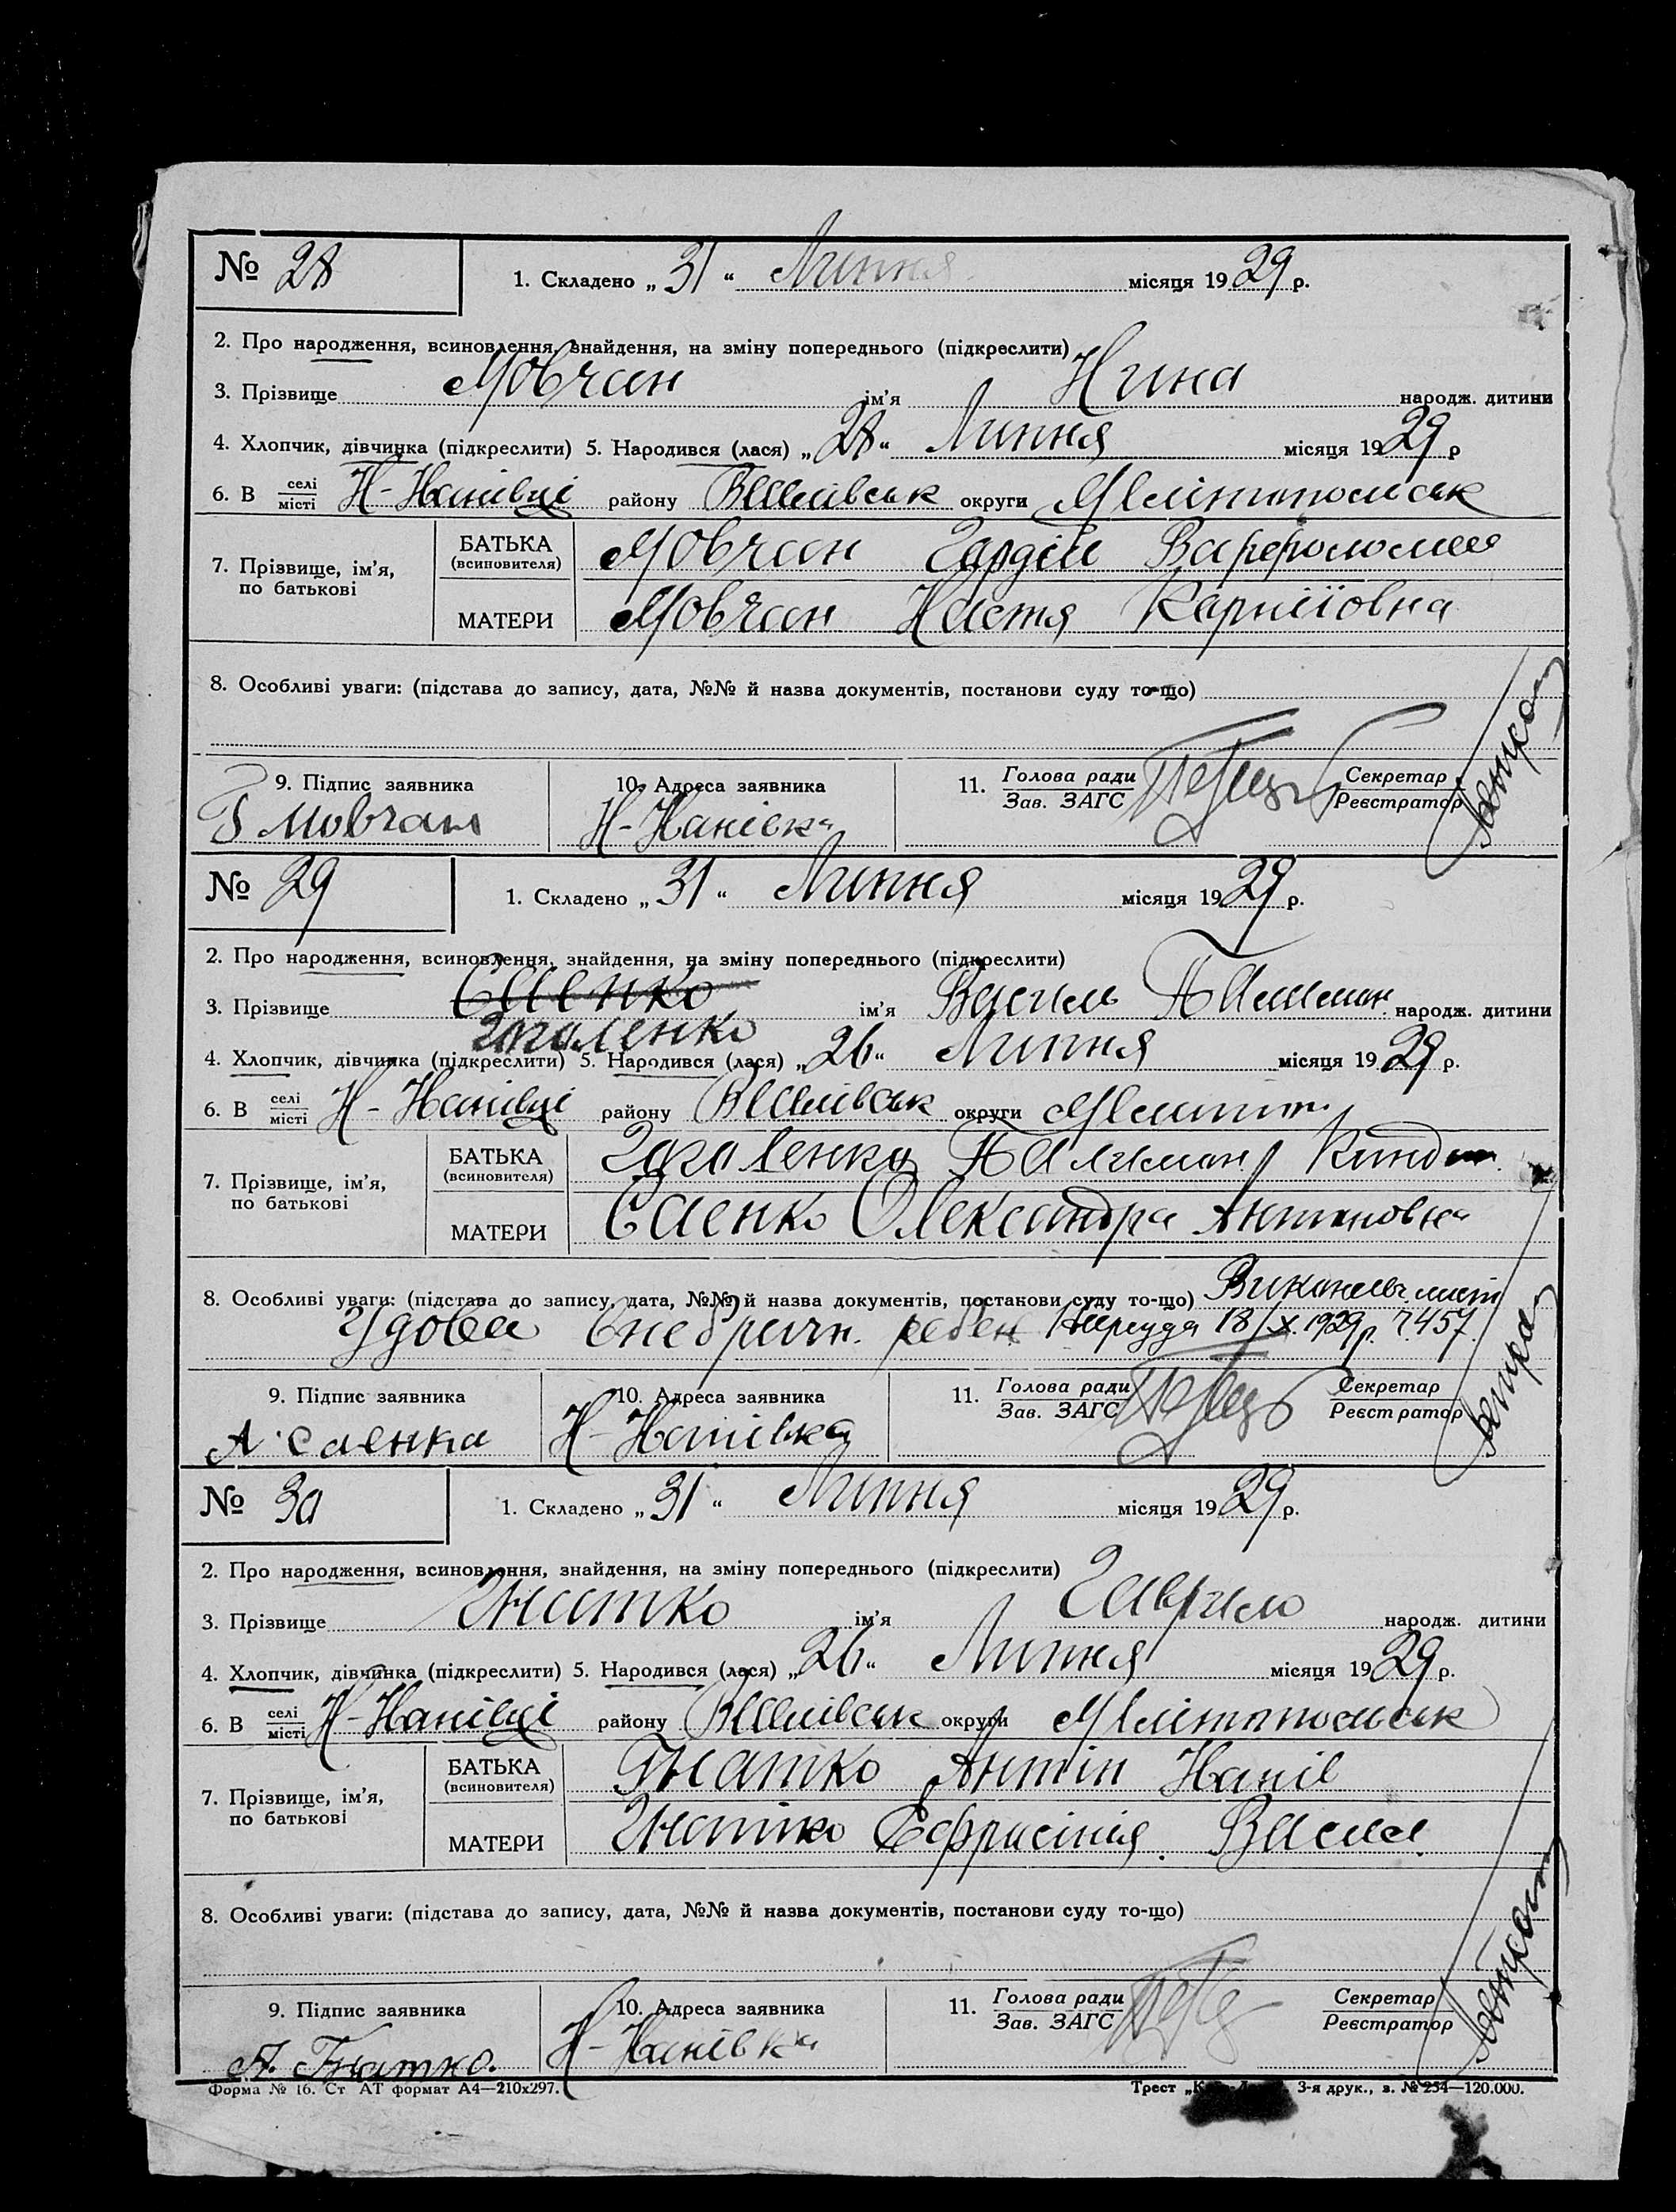 № 28 1. Складено „31“ Липня місяця 1929 р.
2. Про народження, всиновлення, знайдення, на зміну попереднього (підкреслити)
3. Прізвище Мовчан ім'я Нина народж. дитини
4. Хлопчик, дівчинка (підкреслити) 5. Народився (лася) „28“ Липня місяця 1929 р
6. В селі місті Н-Нанівці району округи Мелітопольськ
7. Прізвище, ім'я, по батькові
БАТЬКА (всиновителя) Мовчан Гордій Варфоломея
МАТЕРИ Мовчан Настя Карпіївна
8. Особливі уваги: (підстава до запису, дата, №№ й назва документів, постанови суду то-що)
9. Підпис заявника 10. Адреса заявника 11. Голова ради Зав. ЗАГС Секретар Реєстратор
Г Мовчан Н-Нанівка
№ 29 1. Складено „31“ Липня місяця 1929 р.
2. Про народження, всиновлення, знайдення, на зміну попереднього (підкреслити)
3. Прізвище Саенко ім'я Василь народж. дитини
Гоголенко
4. Хлопчик, дівчинка (підкреслити) 5. Народився (лася) „26“ Липня місяця 1929 р.
6. В селі місті Н-Нанівці району округи Мелитоп
7. Прізвище, ім'я, по батькові
БАТЬКА (всиновителя) Гоголенко
МАТЕРИ Саенко Олександра Антоновна
8. Особливі уваги: (підстава до запису, дата, №№ й назва документів, постанови суду то-що) Виконавч. лист
Удова Нарсуда 18/X 1929 р. ч. 457
9. Підпис заявника 10. Адреса заявника 11. Голова ради Зав. ЗАГС Секретар Реєстратор
А Саенка Н-Нанівка
№ 30 1. Складено „31“ Липня місяця 1929 р.
2. Про народження, всиновлення, знайдення, на зміну попереднього (підкреслити)
3. Прізвище Гнатко ім'я Гаврило народж. дитини
4. Хлопчик, дівчинка (підкреслити) 5. Народився (лася) „26“ Липня місяця 1929 р.
6. В селі місті Н-Нанівці району округи Мелітопольськ
7. Прізвище, ім'я, по батькові
БАТЬКА (всиновителя) Гнатко Антін
МАТЕРИ Гнатко Ефросінія Васил.
8. Особливі уваги: (підстава до запису, дата, №№ й назва документів, постанови суду то-що)
9. Підпис заявника 10. Адреса заявника 11. Голова ради Зав. ЗАГС Секретар Реєстратор
А. Гнатко. Н-Нанівка
Форма № 16. Ст АТ формат А4—210х297. Трест 3-я друк., з. № 254—120.000.